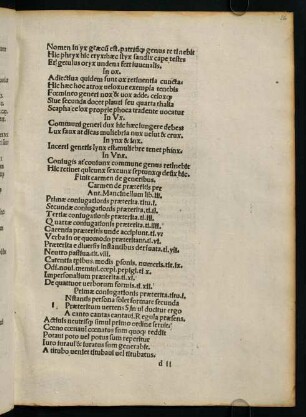 Nomen in yx græcũ est. patriũq; genus retinebit
Hic phryx hic eryxhæc styx sandix cape testes
Et getulus oryx undena fert iuuenalis.
In ox.
Adiectiua quidem sunt ox retinentia cuncta:
Hic hæc hoc atrox ueloxue exempla tenebis
Fœmineo generi nox & uox addo celoxq;
Siue secunda docet plauti seu quarta thalia
Scapha celox proprie phoca tradente uocatur
In Vx.
Communi generi dux hic hæc iungere debeat
Lux faux at dicas muliebria nux uelut & crux.
In ynx & inx.
Incerti generis lynx est. multi bre tenet phinx.
In Vnx.
Coniugis at coniunx commune genus retinebit
Hic retinet quicunx sexcunx septunxq; deũx hic.
Finit carmen de generibus.
Carmen de præteritis per
Ant. Mancinellum lib. iii.
Primæ coniugationis præterita. titu. i.
Secundæ coniugationis præterita. ti. ii.
Tertiæ coniugationis præterita. ti. iii.
Quartæ coniugationis præterita. ti. iiii.
Carentia præteritis unde accipiunt. ti. vi
Verba in or quomodo præteritant. ti. vi.
Præterita e diuersis instantibus deriuata. ti. vii.
Neutro passiua. tit. viii.
Carentia tribus. mediis psonis. numeris. tit. ix.
Odi. noui. memini. cœpi. pepigi. ti. x.
Impersonalium præterita. ti. xi.
De quattuor uerborum formis. ti. xii.
Primæ coniugationis præterita. titu. i.
Instantis persona solet formare secunda
Præteritum uerrens S in ui ductior ergo
A canto cantas cantaui. Regula præsens.
Actiuis neutrisq; simul primo ordine seruit:
Cœno cœnaui cœnatus sum quoq; reddit
Potaui poto uel potus sum reperitur
Iuro iuraui & iuratus sum generabit.
A titubo ueniet titubaui uel titubatus.
d ii